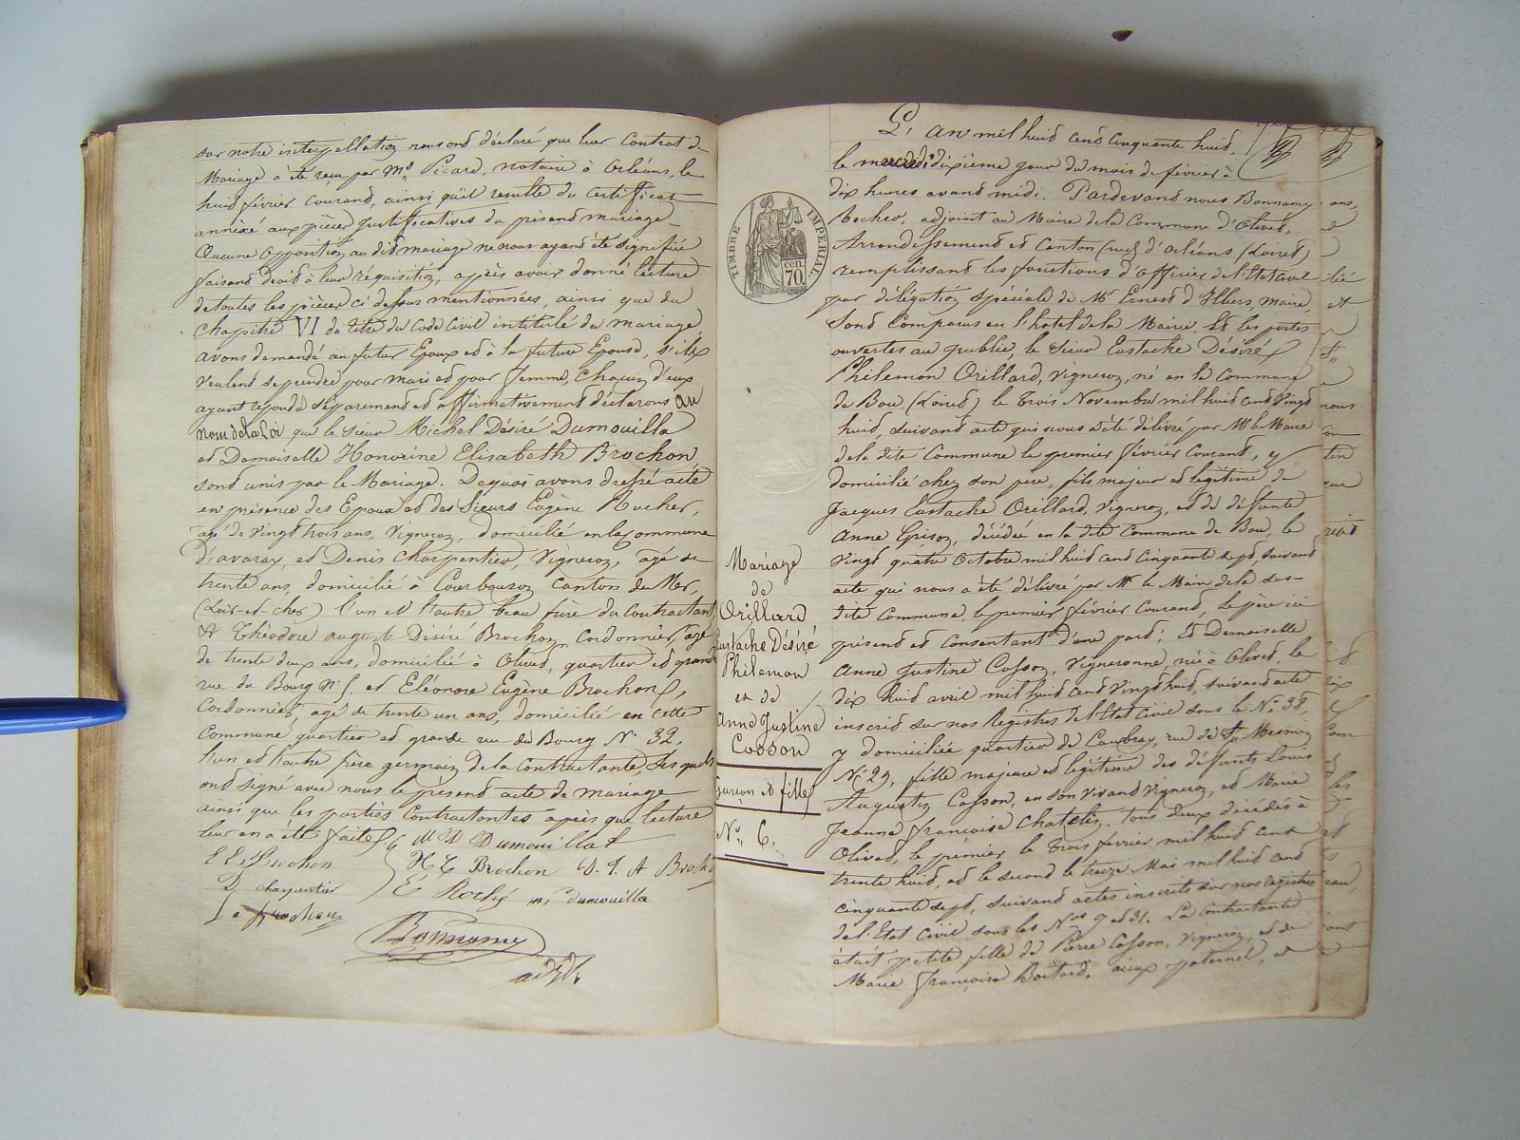 sur notre interpellation nous ont déclaré que leur Contrat de
Mariage a été reçu par Me Picard, notaire à Orléans, le
huit février Courant, ainsi qu'il resulte du certificat
annéxé aux pièces justificatives du présent mariage
Aucune opposition au dit mariage ne nous ayant été signifiée
faisant droit à leur réquisition, après avoir donné lecture
de toutes les pièces ci dessus mentionnées, ainsi que du
Chapitre VI du titre du Code Civil intitulé du mariage,
avons demandé au futur Epoux et à la future Epouse, s'ils
veulent se prendre pour mari et pour femme, chacun d'eux
ayant répondu séparement et affirmativement déclarons au
nom de la Loi que le sieur Michel Désiré Dumouilla
et Demoiselle Honorine Elisabeth Brochon
sont unis par le Mariage. De quoi avons dressé acte
en présence des Epoux et des Sieurs Eugène Rocher,
agé de vingt trois ans, vigneron, domicilié en la commune
d'avaray, et Denis Charpentier, vigneron, agé de
trente ans, domicilié à Courbouzon canton de Mer,
(Loir-et-cher) l'un et l'autre beau frère du Contractant
et Théodore august Désiré Brochon, cordonnier, agé
de trente deux ans, domicilié à Olivet, quartier et grande
rue du Bourg et Eléonore Eugène Brochon,
Cordonnier, agé de trente un ans, domicilié en cette
Commune quartier et grande rue du Bourg N° 32,
l'un et l'autre frère germain de la Contractante, lesquels
ont signé avec nous le présent acte de mariage
ainsi que les parties Contractantes après que lecture
leur en a été faite
M D Dumouilla
E E Brochon
H E Brochon D. T. A Broch
D charpentier
E Roché dumouilla
Brochon
Bonnamy
adjt
TIMBRE IMPERIAL
70 cen.
Mariage
de
Orillard
Eustache Désiré
Philemon
et de
Anne Justine
Cosson
Garçon et fille
N° 6.
L'an mil huit cent cinquante huit.
le mercredi dixième jour du mois de février à
dix heures avant midi. Pardevant nous Bonnamy
adjoint au Maire de la Commune d'Olivet,
Arrondissement et Canton (sud) d'orléans (Loiret)
remplissant les fonctions d'officier de l'Etat Civil
par délégation spéciale de Mr Ernest d'Illiers, maire,
Sont Comparus en l'hotel de la Mairie, et les portes
ouvertes au public, le Sieur Eustache Désiré
Philemon Orillard, vigneron, né en la Commune
de Bou (Loiret) le Trois Novembre mil huit cent vingt
huit, suivant acte qui nous a été délivré par Mr le Maire
de la dite Commune le premier février Courant, y
domicilié chez son père, fils majeur et légitime de
Jacques Eustache Orillard, vigneron, et de défunte
Anne Grison, décédée en la dite Commune de Bou, le
vingt quatre Octobre mil huit cent cinquante sept, suivant
acte qui nous a été délivré par Mr le Maire de la sus-
dite Commune, le premier février Courant, le père ici
présent et consentant d'une part; Et Demoiselle
Anne Justine Cosson, Vigneronne, née à Olivet, le
dix huit avril mil huit cent vingt huit, suivant acte
inscrit sur nos Registres de l'Etat Civil sous le N° 38,
y domiciliée quartier de Coubray, rue de St Mesmin
N° 29, fille majeure et légitime des défunts Louis
Augustin Cosson, en son vivant Vigneron, et Marie
Jeanne françoise Chatelin. tous deux décédés à
Olivet, le premier le Trois février mil huit cent
trente huit, et le second le treize Mai mil huit cent
cinquante sept, suivant actes inscrits sur nos registres
de l'Etat Civil sous les Nos 9 et 31. La Contractante
était petite fille de Pierre Cosson, vigneron, et de
Marie françoise aieux paternel, et